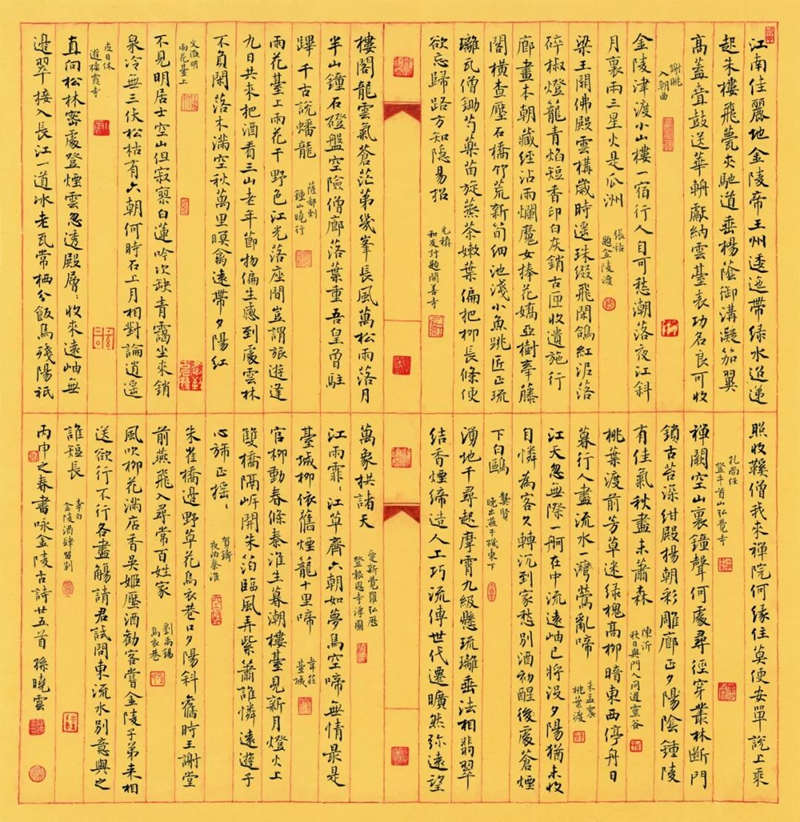 江南佳麗地金陵帝王州逶迤帶緑水迢遞
起朱樓飛甍夾馳道垂楊蔭御溝凝笳翼
高蓋疊鼓送華輈獻納雲臺表功名良可收
謝朓
入朝曲
金陵津渡小山樓一宿行人自可愁潮落夜江斜
月裏兩三星火是瓜洲
張祜
題金陵渡
梁王開佛殿雲構歲時遥珠綴飛閑鴿紅泥落
碎椒燈籠青焰短香印白灰銷古匣收遺施行
廊畫本朝藏經沾雨爛魔女捧花嬌亞樹牽藤
閣橫查壓石橋竹荒新筍細池淺小魚跳匠正琉
璃瓦僧鋤芍藥苗旋蒸茶嫩葉偏把柳長條便
欲忘歸路方知隱易招
元稹
和友封題開善寺
樓閣龍雲氣蒼茫第幾峯長風萬松雨落月
半山鐘石磴盤空險僧廊落葉重吾皇曾駐
蹕千古說蟠龍
薩都剌
鍾山曉行
雨花臺上雨花千野色江光落座間豈謂旅遊逢
九日共來把酒看三山老年節物偏生感到處雲林
不負閑落木滿空秋萬里暝禽遠帶夕陽紅
文徵明
雨花臺上
不見明居士空山但寂寥白蓮吟次缺青靄坐來銷
泉冷無三伏松枯有六朝何時石上月相對論逍遥
皮日休
遊棲霞寺
直向松林密處登煙雲忽透殿層〻收來遠岫無
邊翠接入長江一道冰老瓦常栖分飯鳥殘陽祇
照收鞵僧我來禪院何緣住莫便安單說上乘
孔尚任
登牛首山弘覺寺
禪關空山裏鐘聲何處尋徑穿叢林斷門
鎖古苔深紺殿楊朝彩雕廊正夕陽陰鍾陵
有佳氣秋盡未蕭森
陳沂
秋日與門人同遊靈谷
桃葉渡前芳草迷緑槐高柳暗東西停舟日
暮行人盡流水一灣鶯亂啼
朱孟震
桃葉渡
江天忽無際一舸在中流遠岫已將没夕陽猶未收
自憐為客久轉沉到家愁别酒初醒後處蒼煙
下白鷗
龔賢
晚出燕子磯東下
湧地千尋起摩霄九級懸琉璃垂法相翡翠
結香煙締造人工巧流傳世代遷曠然弥遠望
萬象拱諸天
愛新覺羅弘曆
登報恩寺浮圖
江雨霏〻江草齊六朝如夢鳥空啼無情最是
臺城柳依舊煙籠十里啼
韋莊
臺城
官柳動春條秦淮生暮潮樓臺見新月燈火上
雙橋隔岸開朱泊臨風弄紫簫誰憐遠遊子
心旆正摇〻
賀鑄
夜泊秦淮
朱雀橋邊野草花烏衣巷口夕陽斜舊時王謝堂
前燕飛入尋常百姓家
劉禹錫
烏衣巷
風吹柳花滿店香吳姬壓酒勸客嘗金陵子弟来相
送欲行不行各盡觴請君試問東流水别意與之
誰短長
李白
金陵酒肆留别
丙申之春書咏金陵古詩廿五首 孫曉雲